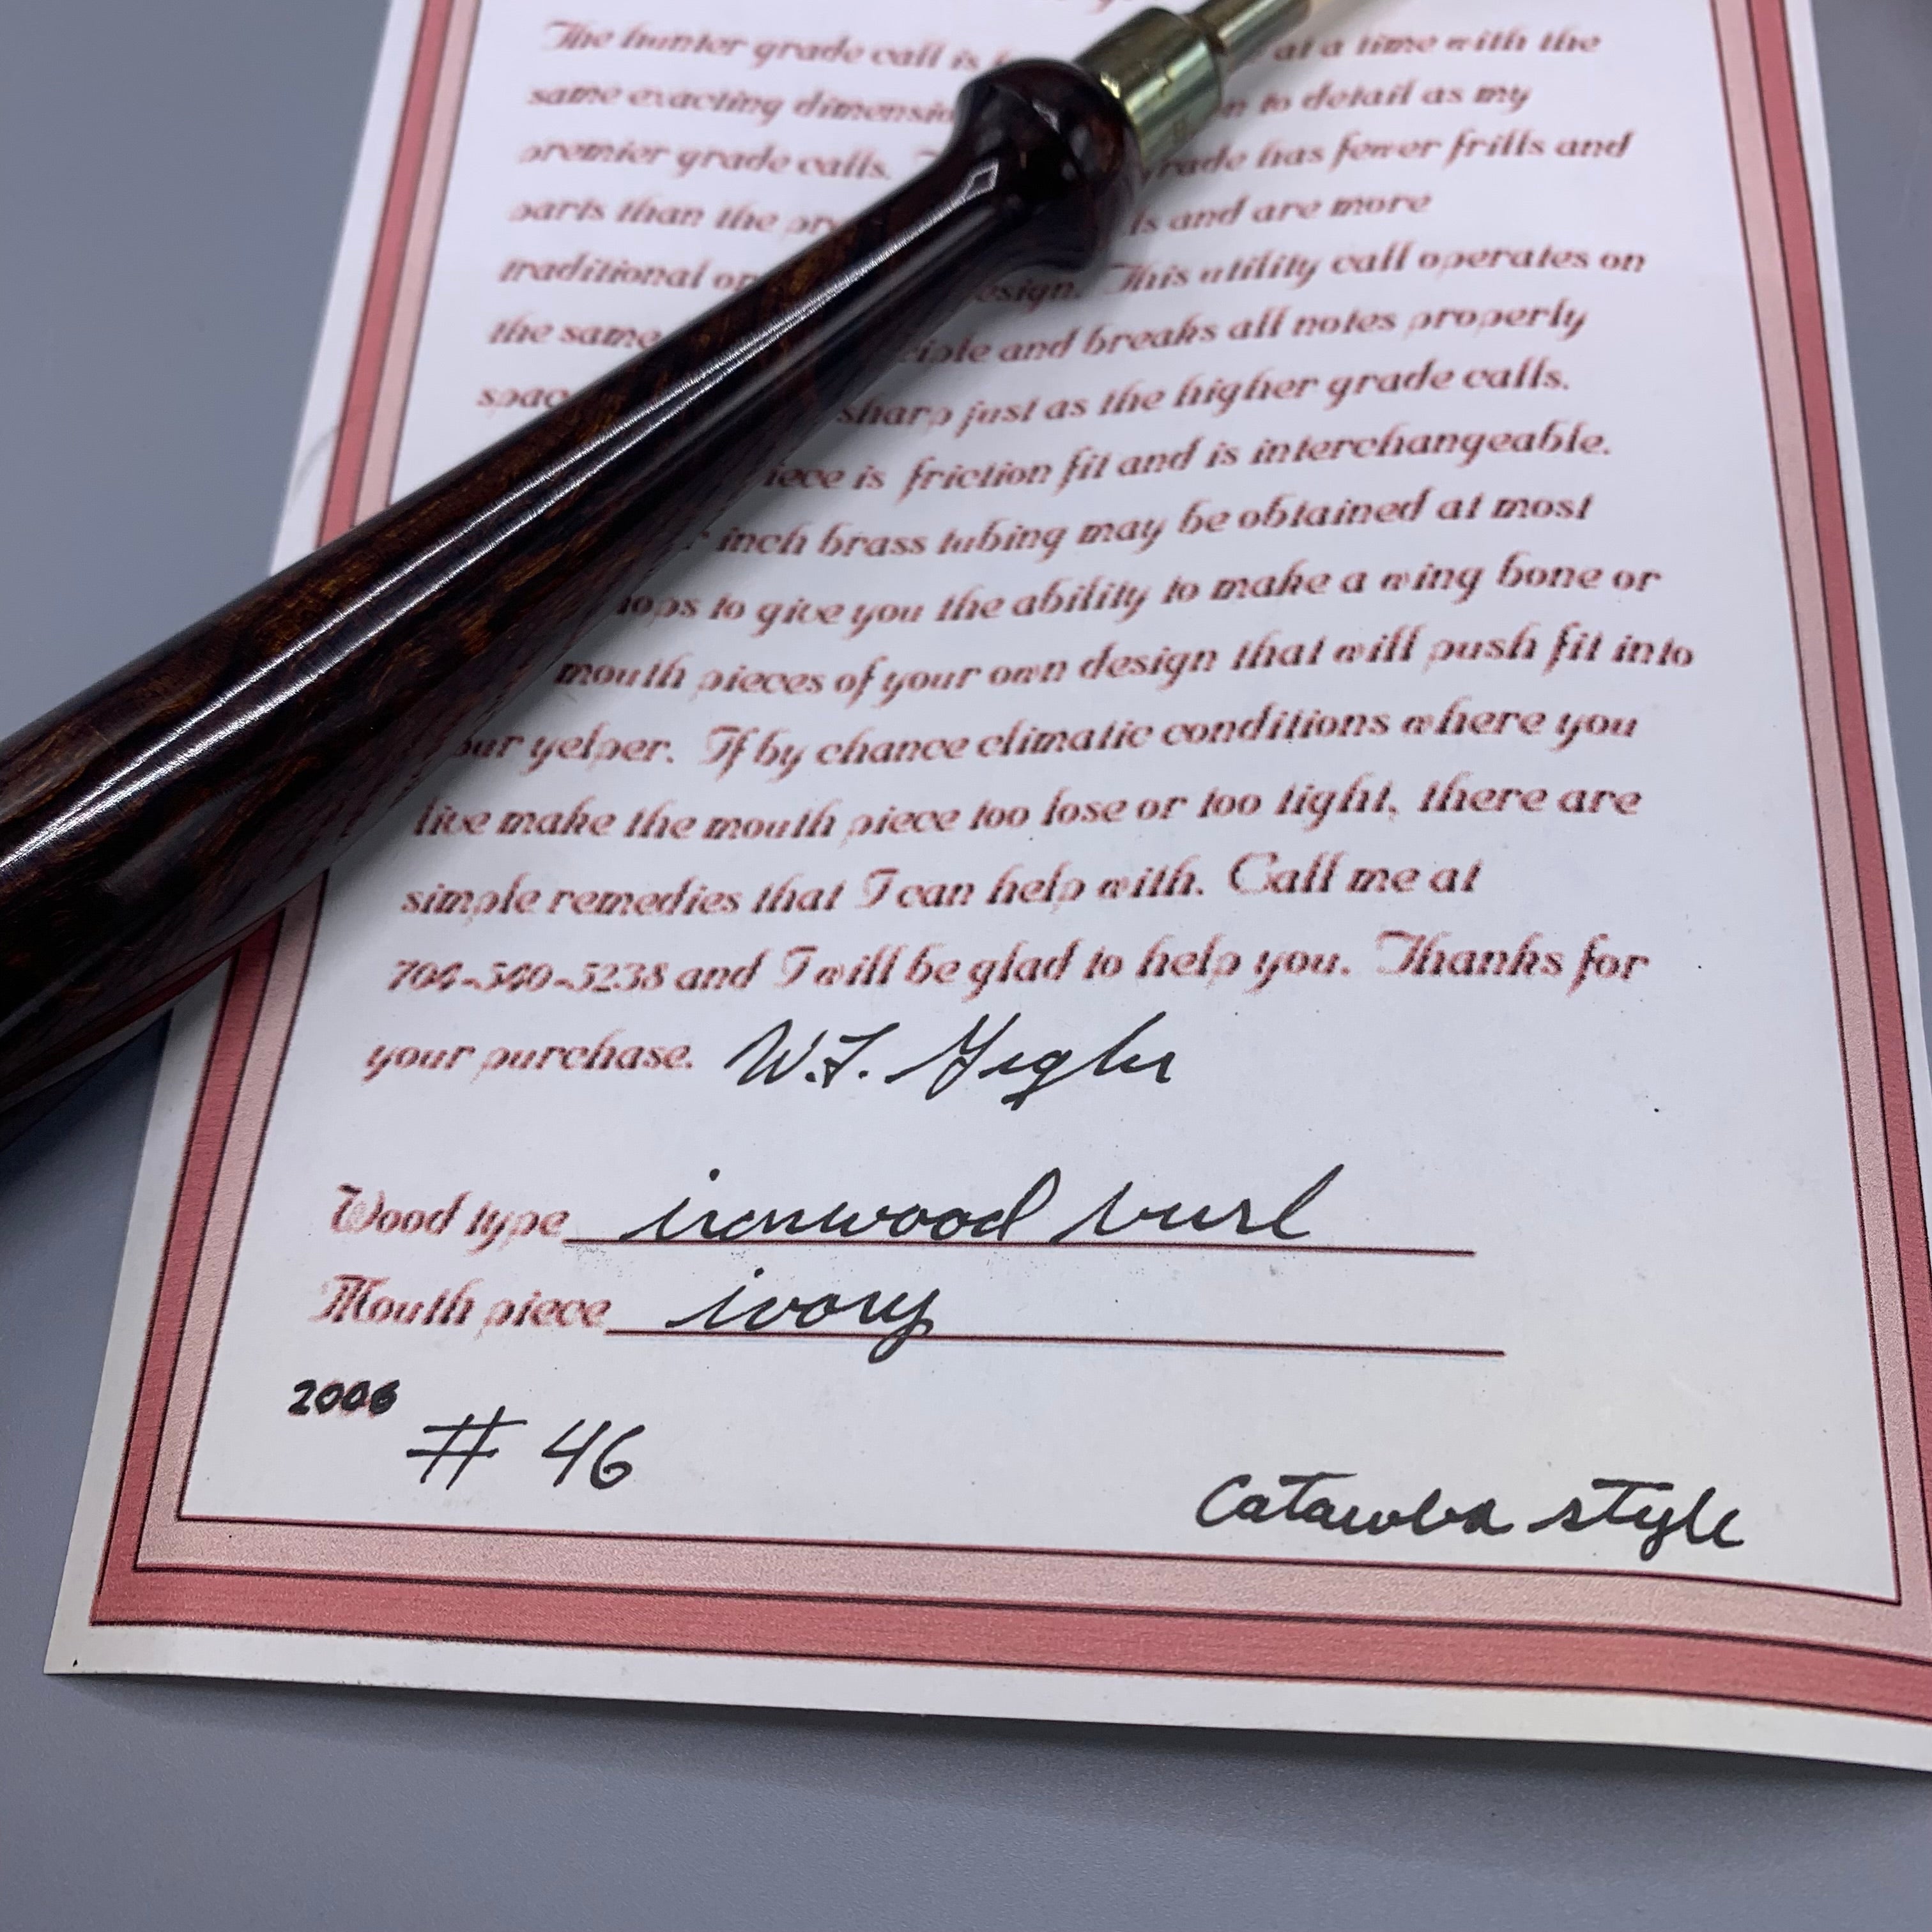 The hunter grade call is at a time with the
same exacting to detail as my
premier grade calls. has fewer frills and
parts than the and are more
traditional This utility call operates on
the same and breaks all notes properly
sharp just as the higher grade calls.
is friction fit and is interchangeable.
inch brass tubing may be obtained at most
to give you the ability to make a wing bone or
mouth pieces of your own design that will push fit into
yelper. If by chance climatic conditions where you
live make the mouth piece too lose or too tight, there are
simple remedies that I can help with. Call me at
704-540-5238 and I will be glad to help you. Thanks for
your purchase. W.F.
Wood type ironwood burl
Mouth piece ivory
2006
# 46
Catawba style